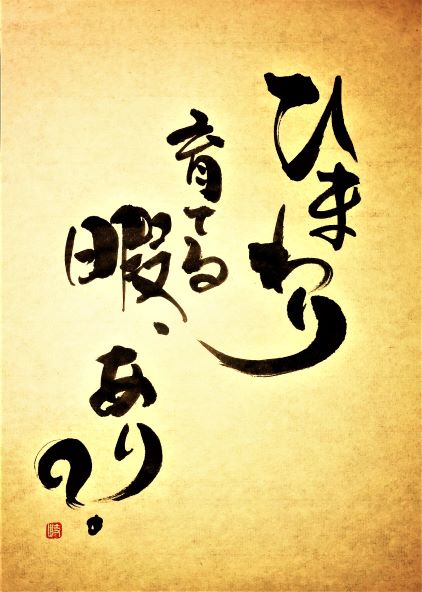 ひまわり
育てる
暇、あり?